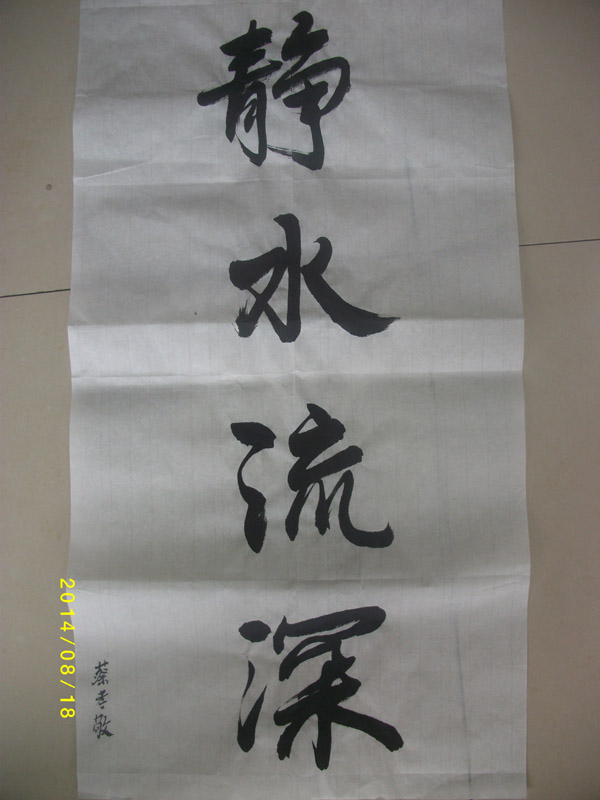 静水流深
蔡孝敬
2014/08/18